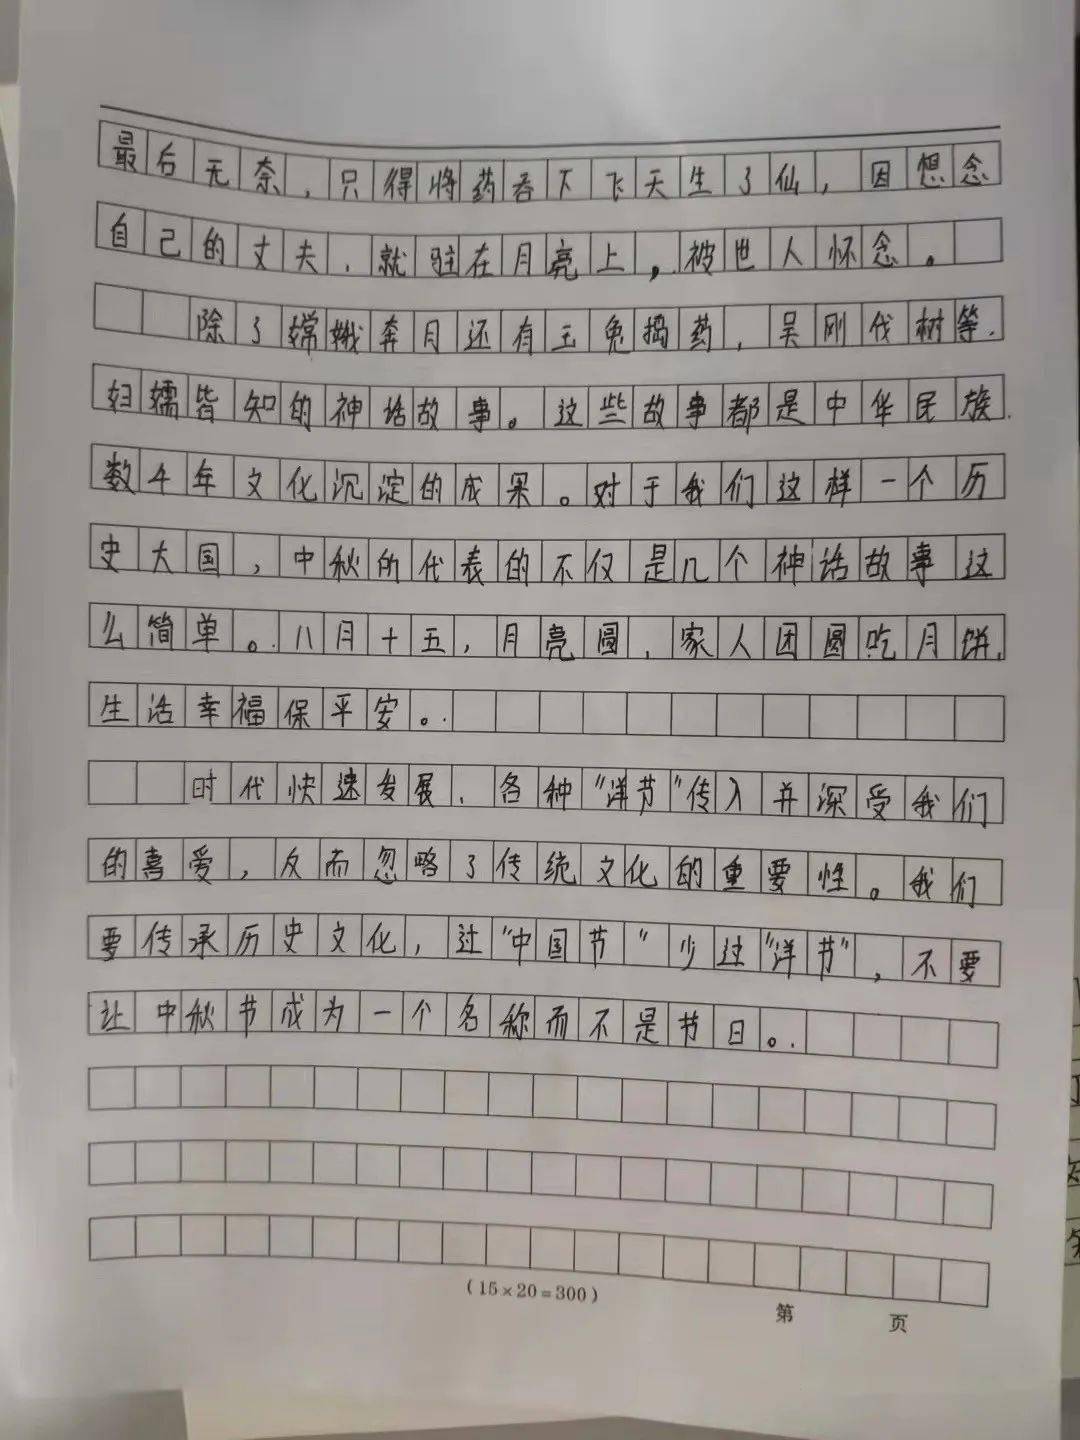 最后无奈，只得将药吞下飞天生了仙，因想念
自己的丈夫，就驻在月亮上，被世人怀念。
除了嫦娥奔月还有玉兔捣药，吴刚伐树等，
妇孺皆知的神话故事。这些故事都是中华民族
数千年文化沉淀的成果。对于我们这样一个历
史大国，中秋的代表的不仅是几个神话故事这
么简单。八月十五，月亮圆，家人团圆吃月饼，
生活幸福保平安。
时代快速发展，各种“洋节”传入并深受我们
的喜爱，反而忽略了传统文化的重要性。我们
要传承历史文化，过“中国节”少过“洋节”，不要
让中秋节成为一个名称而不是节日。
（15×20=300）
第 页